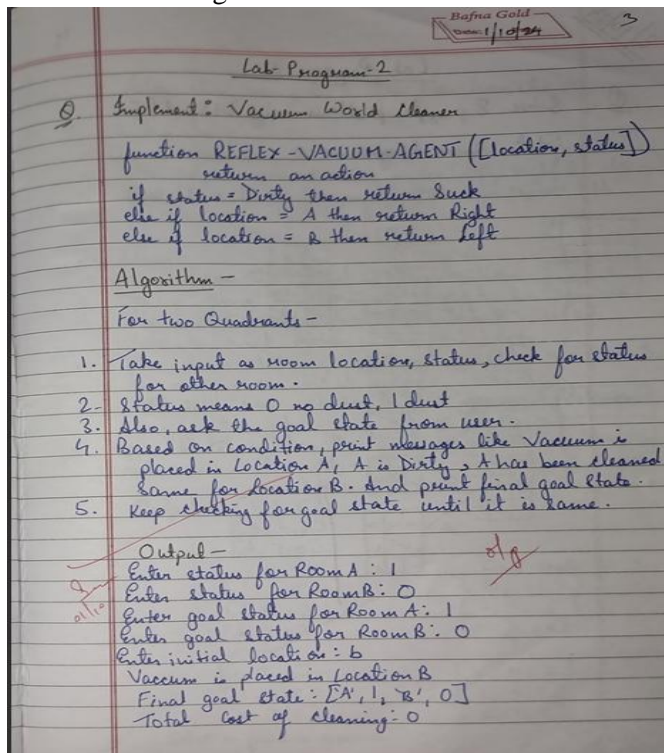 Bafna Gold
Date: 1/10/24
3
Lab-Program-2
Q. Implement: Vacuum World Cleaner
function REFLEX-VACUUM-AGENT ([location, status])
return an action
if status = Dirty then return Suck
else if location = A then return Right
else if location = B then return Left
Algorithm -
For two Quadrants -
1. Take input as room location, status, check for status
for other room.
2- Status means 0 no dust, 1 dust
3. Also, ask the goal state from user.
4. Based on condition, print messages like Vacuum is
placed in Location A, A is Dirty, A has been cleaned
Same for Location B. And print final goal state.
5. Keep checking for goal state until it is same.
Output -
o/p
Enter status for Room A: 1
Enter status for Room B: 0
01/10
Enter goal status for Room A: 1
Enter goal status for Room B: 0
Enter initial location: b
Vaccum is placed in Location B
Final goal state: ['A', 1, 'B', 0]
Total Cost of cleaning: 0